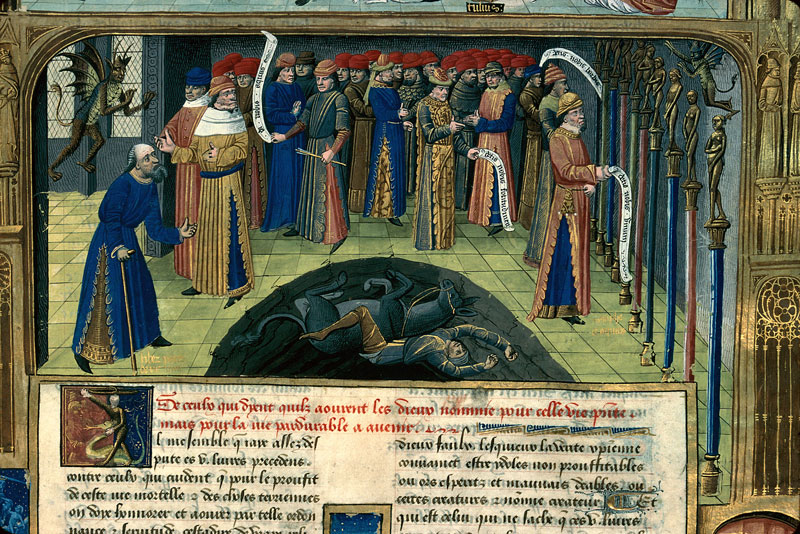 tulius
da nobis equos
da nobis
De ceulx qui dient quilz aourent les dieux nommie pour ceste vie pnte
mais pour la vie pardurable a avenir
Il me semble q iaye assez dis
pute es v. livres precedens
contre ceulx qui cuident q pour le proufit
de ceste vie mortelle & des choses terriennes
on doye honnorer et aourer par telle ordon
nance & servitude
dieux faulx lesquieux la verite xpienne
convainct estre ydoles non proufitables
ou ors esperitz et mauvais deables ou
certes creatures & nommie createur Et
qui est celui qui ne sache q ces v. livres